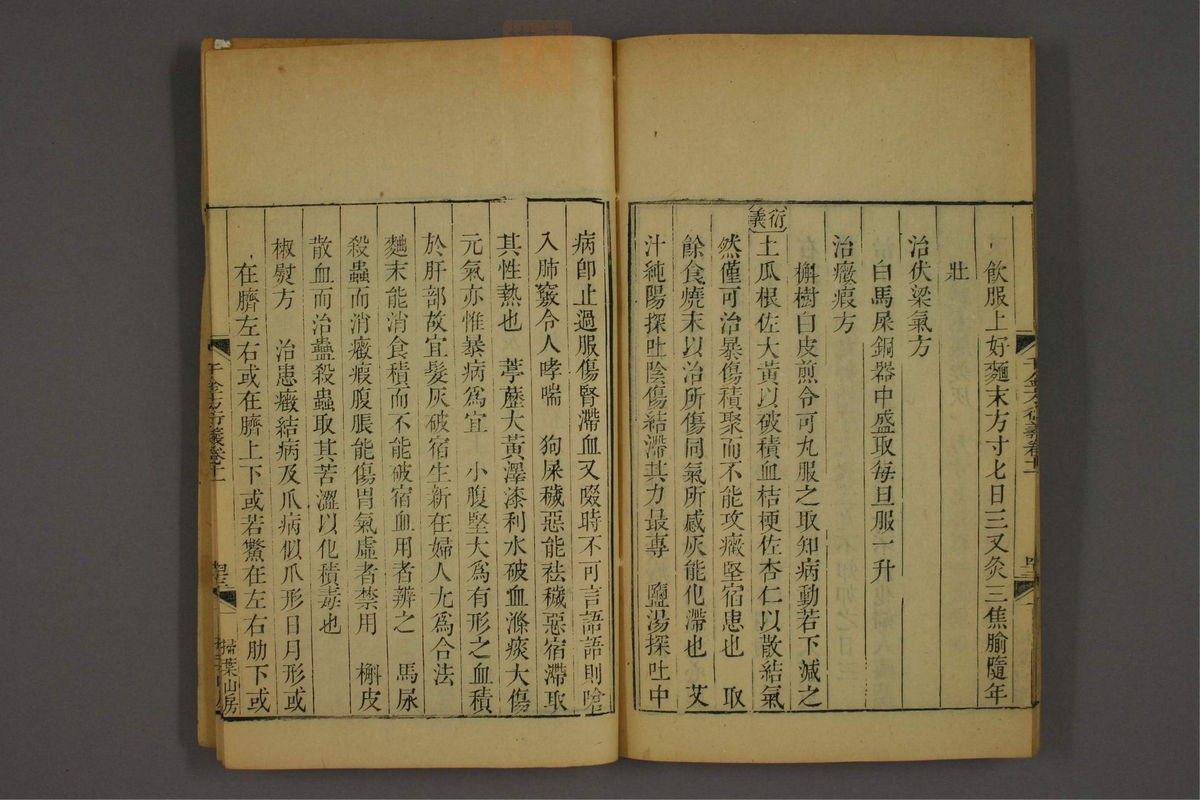 飲服上好麵末方寸匕日三又灸三焦腧隨年
壯
治伏梁氣方
白馬尿銅器中盛取每旦服一升
治癥瘕方
槲樹白皮煎令可丸服之取知病動若下減之
衍義
土瓜根佐大黃以破積血桔梗佐杏仁以散結氣
然僅可治暴傷積聚而不能攻癥堅宿患也　取
餘食燒末以治所傷同氣所感灰能化滯也　艾
汁純陽探吐陰傷結滯其力最專　鹽湯探吐中
病卽止過服傷腎滯血又啜時不可言語語則嗆
入肺竅令人哮喘　狗屎穢惡能祛穢惡宿滯取
其性熱也　葶藶大黃澤漆利水破血滌痰大傷
元氣亦惟暴病爲宜　小腹堅大爲有形之血積
於肝部故宜髮灰破宿生新在婦人尤爲合法
麵末能消食積而不能破宿血用者辨之　馬尿
殺蟲而消癥瘕腹脹能傷胃氣虛者禁用　槲皮
散血而治蠱殺蟲取其苦澀以化積毒也
椒熨方　治患癥結病及爪病似爪形日月形或
在臍左右或在臍上下或若鱉在左右肋下或
千金方衍義卷十一
掃葉山房